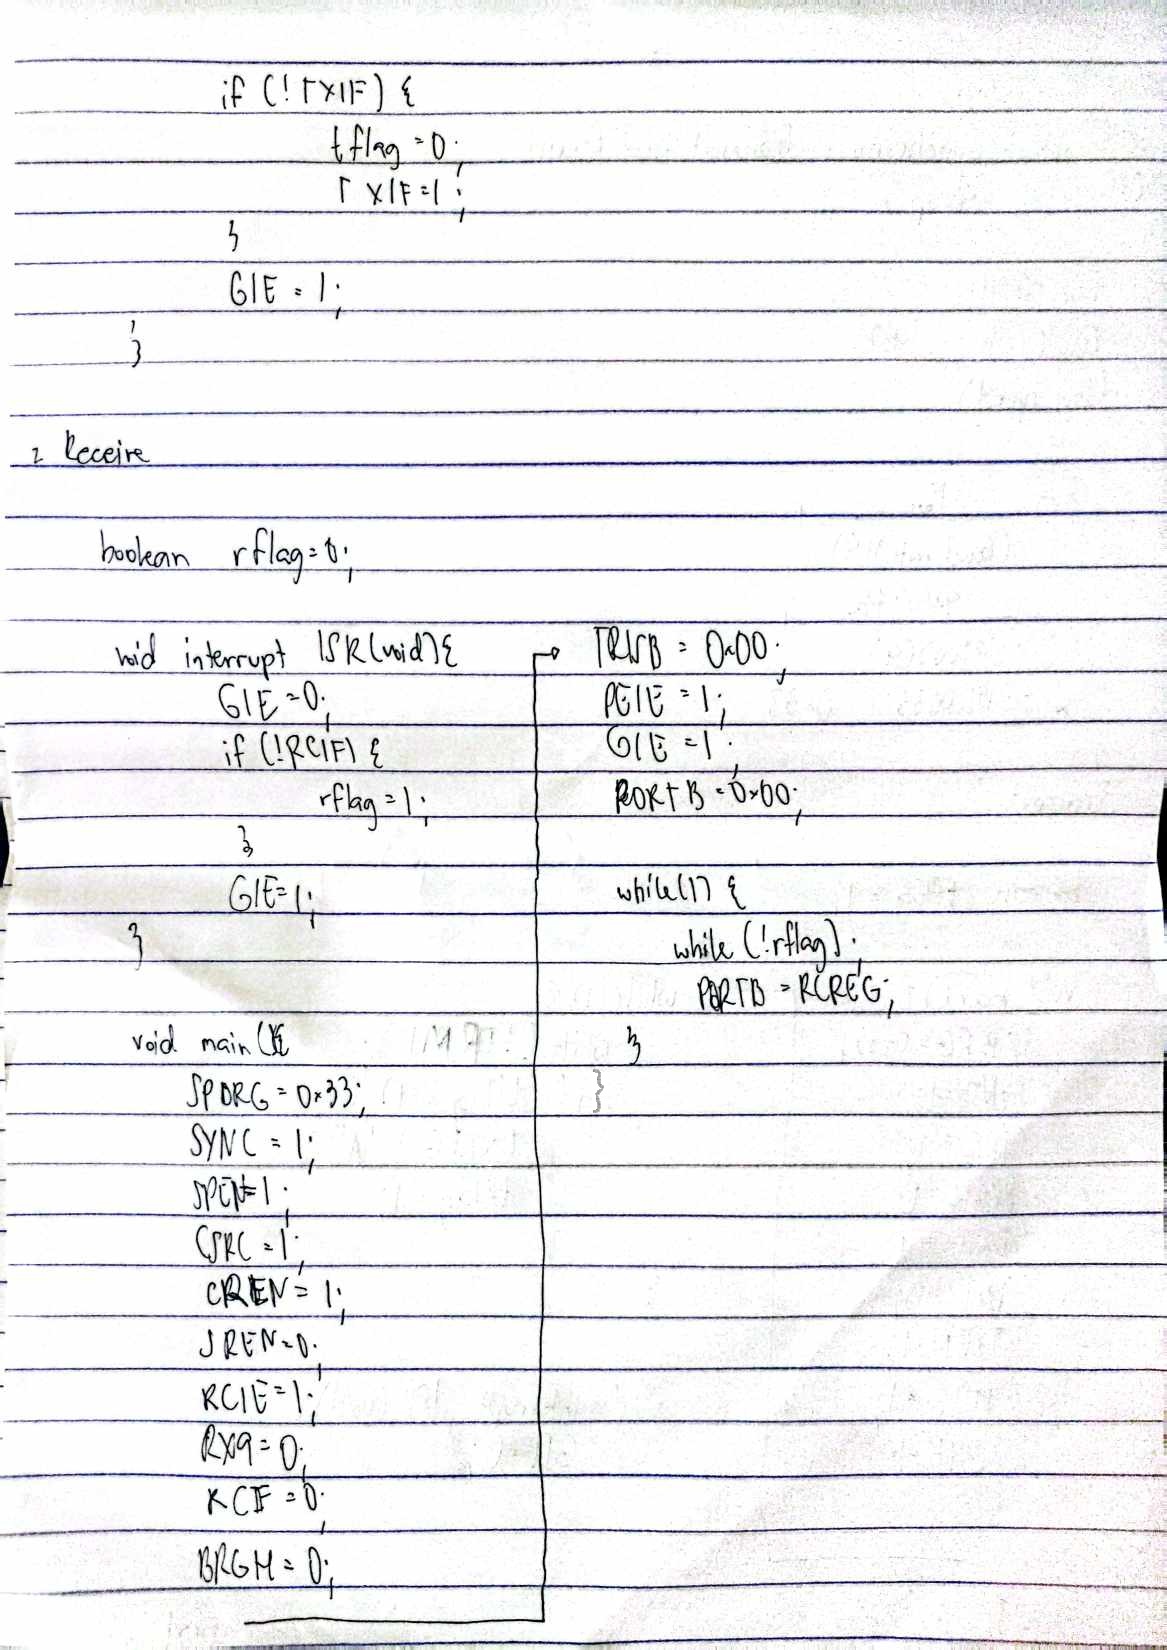 if (!TXIF) {
tflag = 0;
TXIF = 1;
}
GIE = 1;
}
2 Receive
boolean rflag = 0;
void interrupt ISR(void){
GIE = 0;
if (!RCIF) {
rflag = 1;
}
GIE = 1;
}
void main(){
SPBRG = 0x33;
SYNC = 1;
SPEN = 1;
CSRC = 1;
CREN = 1;
SREN = 0;
RCIE = 1;
RX9 = 0;
RCIF = 0;
BRGH = 0;
TRISB = 0x00;
PEIE = 1;
GIE = 1;
PORTB = 0x00;
while(1) {
while (!rflag);
PORTB = RCREG;
}
}